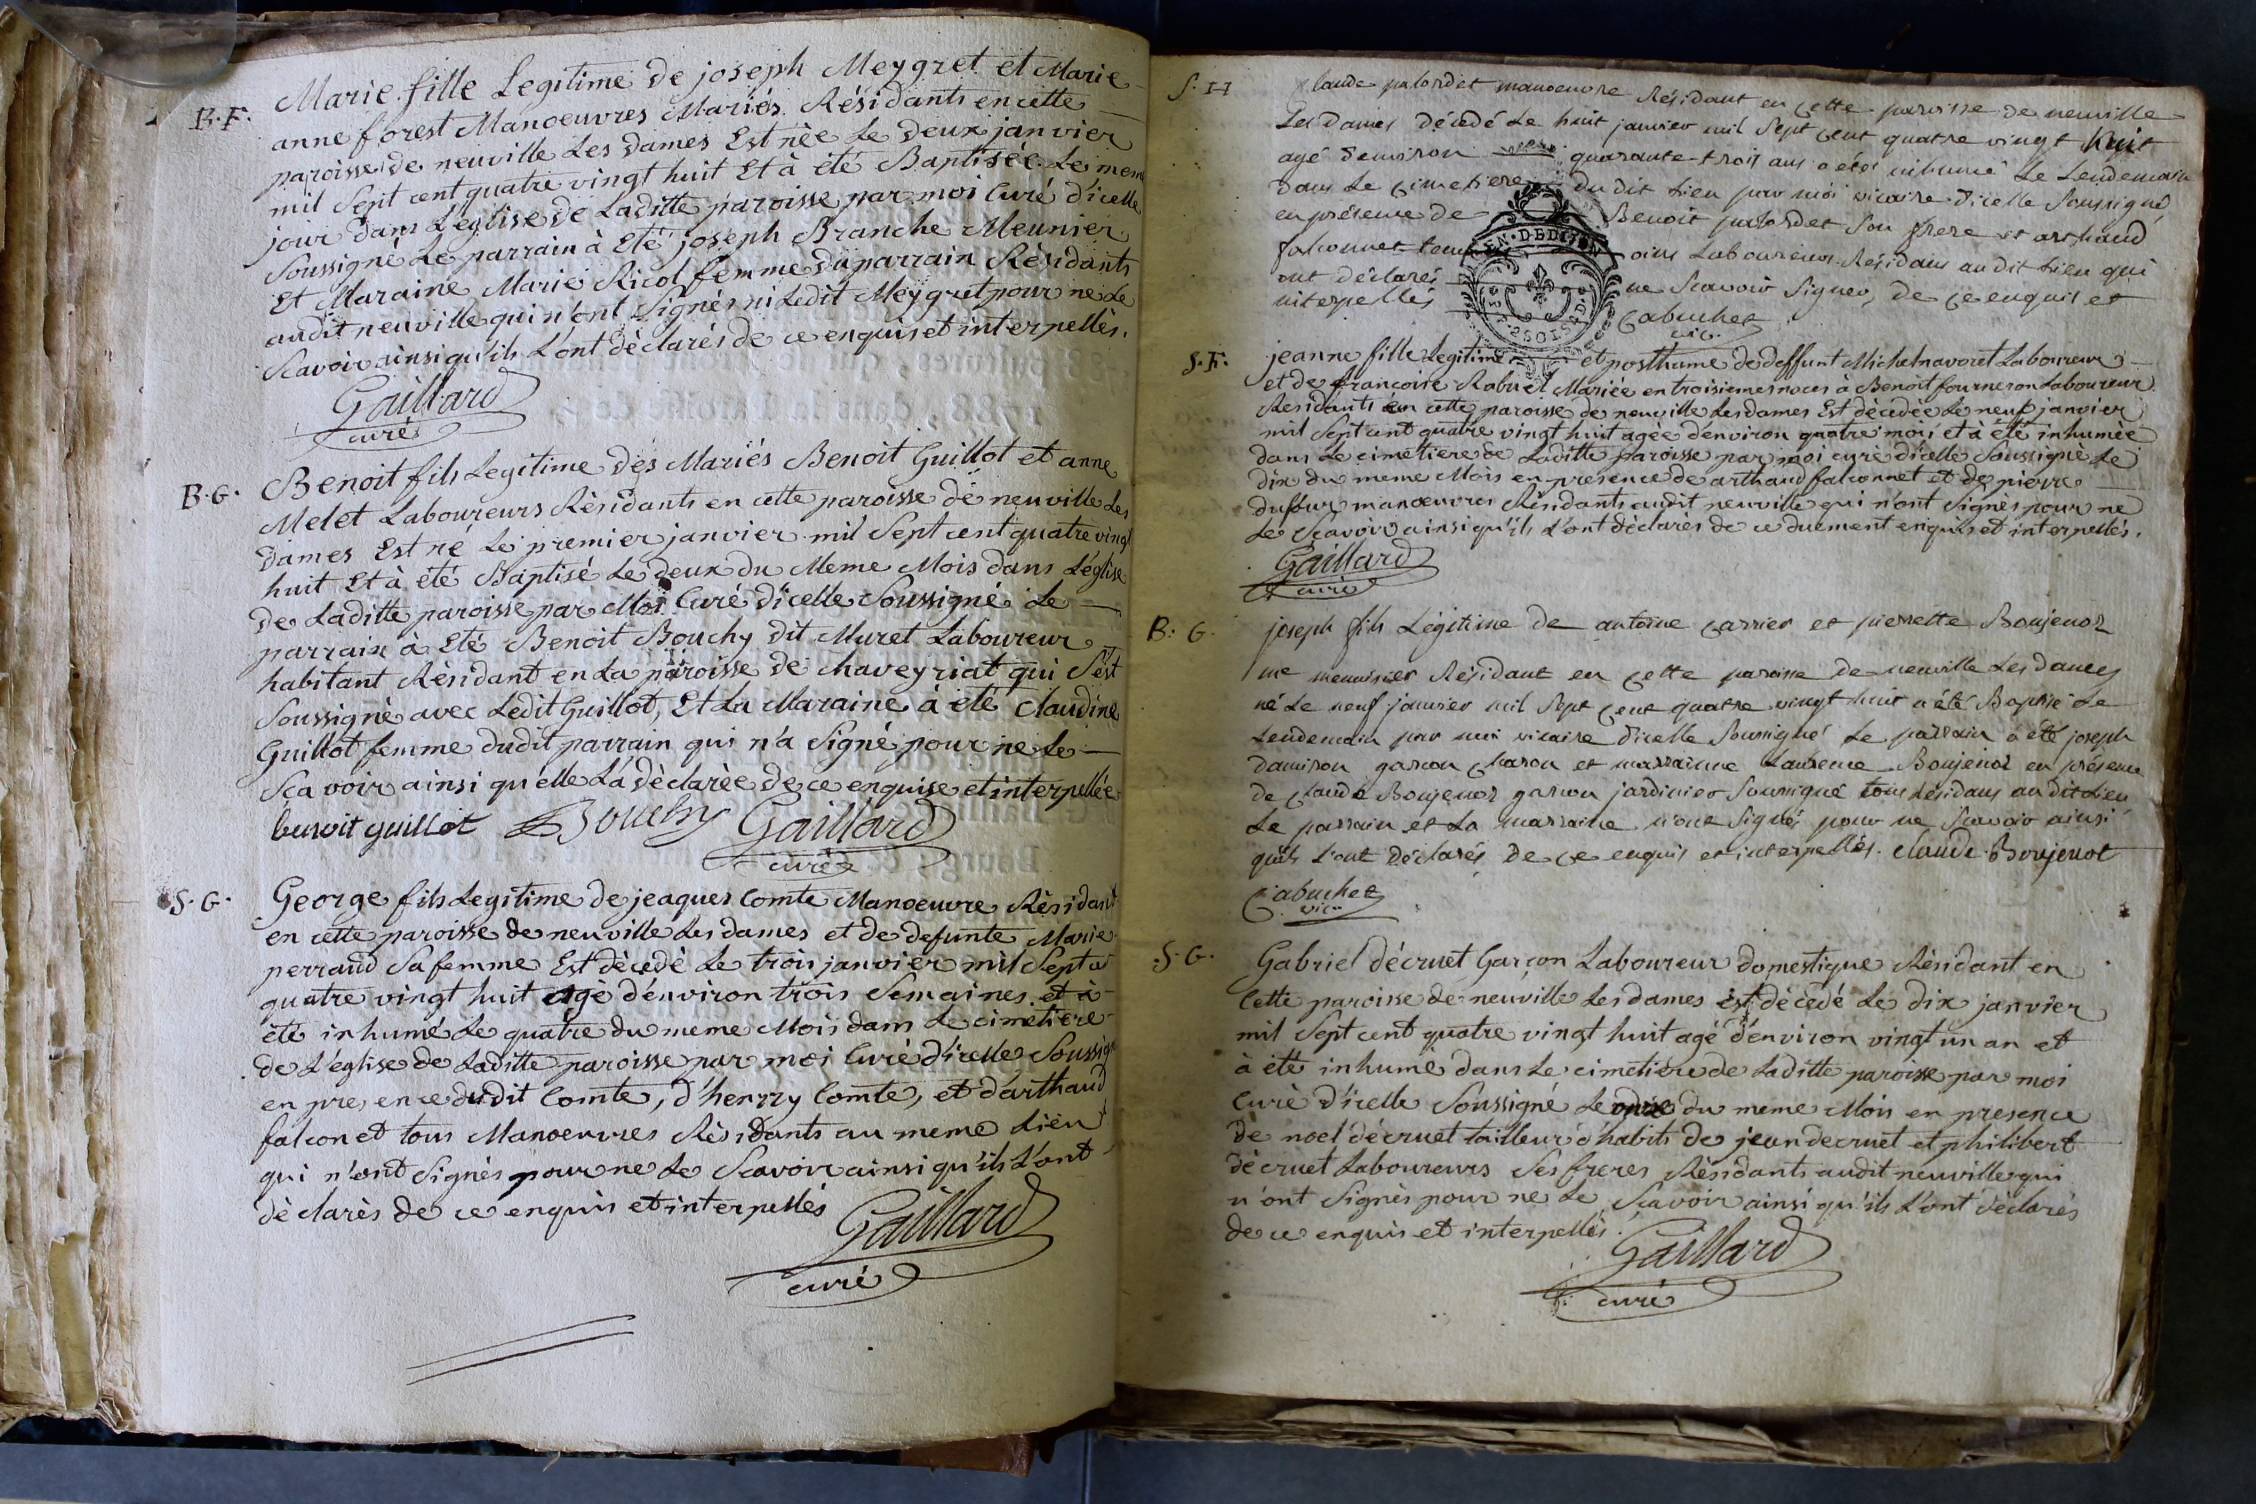 B. F.
Marie fille Legitime de joseph Meygret et Marie
anne forest Manoeuvres Mariés Résidants en cette
paroisse de neuville Les dames Est née Le deux janvier
mil Sept cent quatre vingt huit Et à été Baptisée Le meme
jour dans L'eglise de Laditte paroisse par moi Curé d'icelle
Soussigné Le parrain à Eté joseph Branche Meunier
Et Maraine Marie Ricol femme du parrain Résidants
audit neuville qui n'ont Signés ni Ledit Meygret pour ne Le
Scavoir ainsi qu'ils L'ont déclarés de ce enquis et interpellés.
Gaillard
curé
B. G.
Benoit fils Legitime des Mariés Benoit Guillot et anne
Melet Laboureurs Résidants en cette paroisse de neuville Les
dames Est né Le premier janvier mil Sept cent quatre vingt
huit Et à été Baptisé Le deux du Meme Mois dans L'églisse
de Laditte paroisse par Moi Curé d'icelle Soussigné Le
parrain à Eté Benoit Bouchy dit Muret Laboureur
habitant Résidant en La paroisse de chaveyriat qui S'est
Soussigné avec Ledit Guillot, Et La Maraine à été Claudine
Guillot femme dudit parrain qui n'a Signé pour ne Le
Scavoir ainsi qu'elle L'a déclarée de ce enquise et interpellée
benoit guillot Bouchy Gaillard
curé
S. G.
George fils Legitime de jeaques Comte Manoeuvre Résidant
en cette paroisse de neuville Les dames et de defunte Marie
perraud Sa femme Est décedé Le trois janvier mil Sept ce
quatre vingt huit agé d'environ trois Semaines et à
été inhumé Le quatre du meme Mois dans Le cimetiere
de L'église de Laditte paroisse par moi Curé d'icelle Soussig
en presence dudit Comte, d'henrry Comte, et d'arthaud
falconet tous Manoeuvres Résidants au meme Lieu
qui n'ont Signés pour ne Le Scavoir ainsi qu'ils L'ont
déclarés de ce enquis et interpellés
Gaillard
curé
S. H
Claude palordet manoeuvre Résidant en cette paroisse de neuville
Les Dames décédé Le huit janvier mil Sept cent quatre vingt huit
agé d'environ quarante-trois ans a été inhumé Le Lendemain
dans Le Cimetiere du dit Lieu par moi vicaire d'icelle Soussigné
en présence de Benoit palordet Son frere et arthaud
falconnet Laboureurs Résidans au dit Lieu qui
ont déclarés ne Scavoir Signer, de ce enquis et
interpellés
Cabuchet
vic.
S. F.
jeanne fille Legitime et posthume de deffunt Michel navoret Laboureur
et de francoise Rabuel Mariée en troisiemes noces à Benoit fourneron Laboureur
Residants en cette paroisse de neuville Les dames Est décedée Le neuf janvier
mil Sept cent quatre vingt huit agée d'environ quatre mois et à été inhumée
dans Le cimetiere de Laditte paroisse par moi curé d'icelle Soussigné Le
dix du meme Mois en presence de arthaud falconnet et de pierre
dufour manoeuvres Résidants audit neuville qui n'ont Signés pour ne
Le Scavoir ainsi qu'ils L'ont déclarés de ce duement enquis et interpellés.
Gaillard
curé
B. G.
joseph fils Légitime de antoine carrier et pierrette Boujenot
me menuisier Résidant en cette paroisse de neuville Les dames
né Le neuf janvier mil Sept cent quatre vingt huit a été Baptisé Le
Lendemain par moi vicaire d'icelle Soussigné Le parrain a été joseph
damiron garcon charon et marrainne Laurence Boujenot en présence
de Claude Boujenot garcon jardinier Soussigné tous Résidans au dit Lieu
Le parrain et La marraine n'ont Signés pour ne Scavoir ainsi
qu'ils L'ont déclarés de ce enquis et interpellés. Claude Boujenot
Cabuchet
vic.
S. G.
Gabriel décruet Garçon Laboureur domestique Résidant en
Cette paroisse de neuville Les dames est décédé Le dix janvier
mil Sept cent quatre vingt huit agé d'environ vingt un an et
à été inhumé dans Le cimetiere de Laditte paroisse par moi
Curé d'icelle Soussigné Le onze du meme Mois en presence
de noel décruet tailleur d'habits de jean decruet et philibert
décruet Laboureurs Ses freres Résidants audit neuville qui
n'ont Signés pour ne Le Scavoir ainsi qu'ils L'ont déclarés
de ce enquis et interpellés.
Gaillard
curé